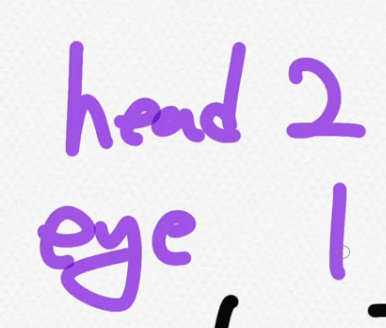 head 2
eye 1